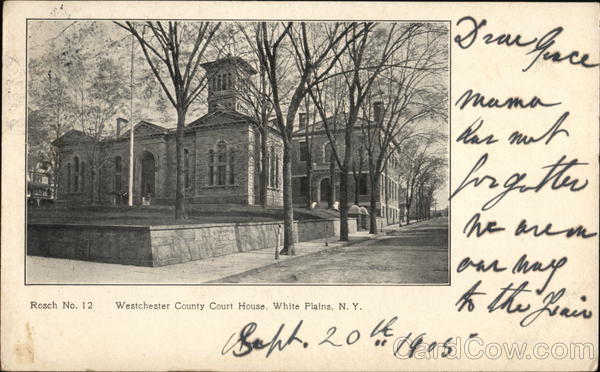 Dear Grace
mama
has not
forgotten
we are on
our way
to the Fair
Rosch No. 12 Westchester County Court House, White Plains, N. Y.
Sept. 20th 1905
CardCow.com